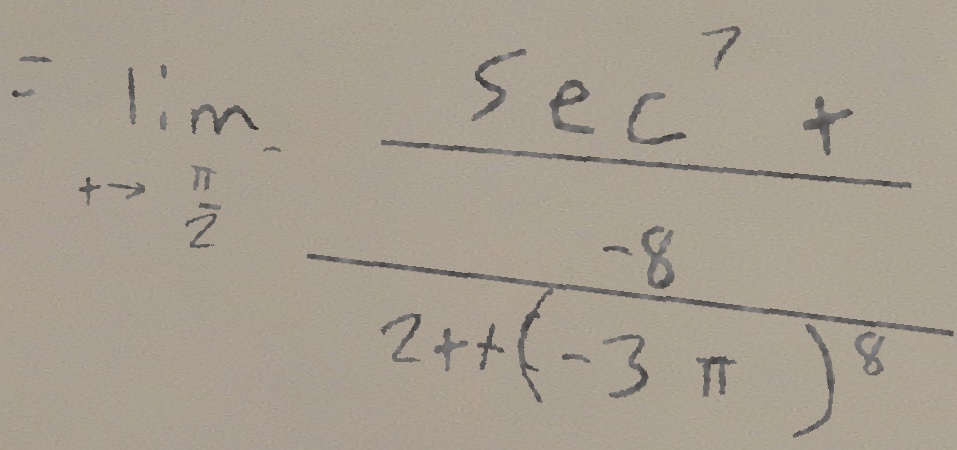 = lim t→π/2⁻ (sec⁷ t) / (-8 / (2t+(-3π)⁸))